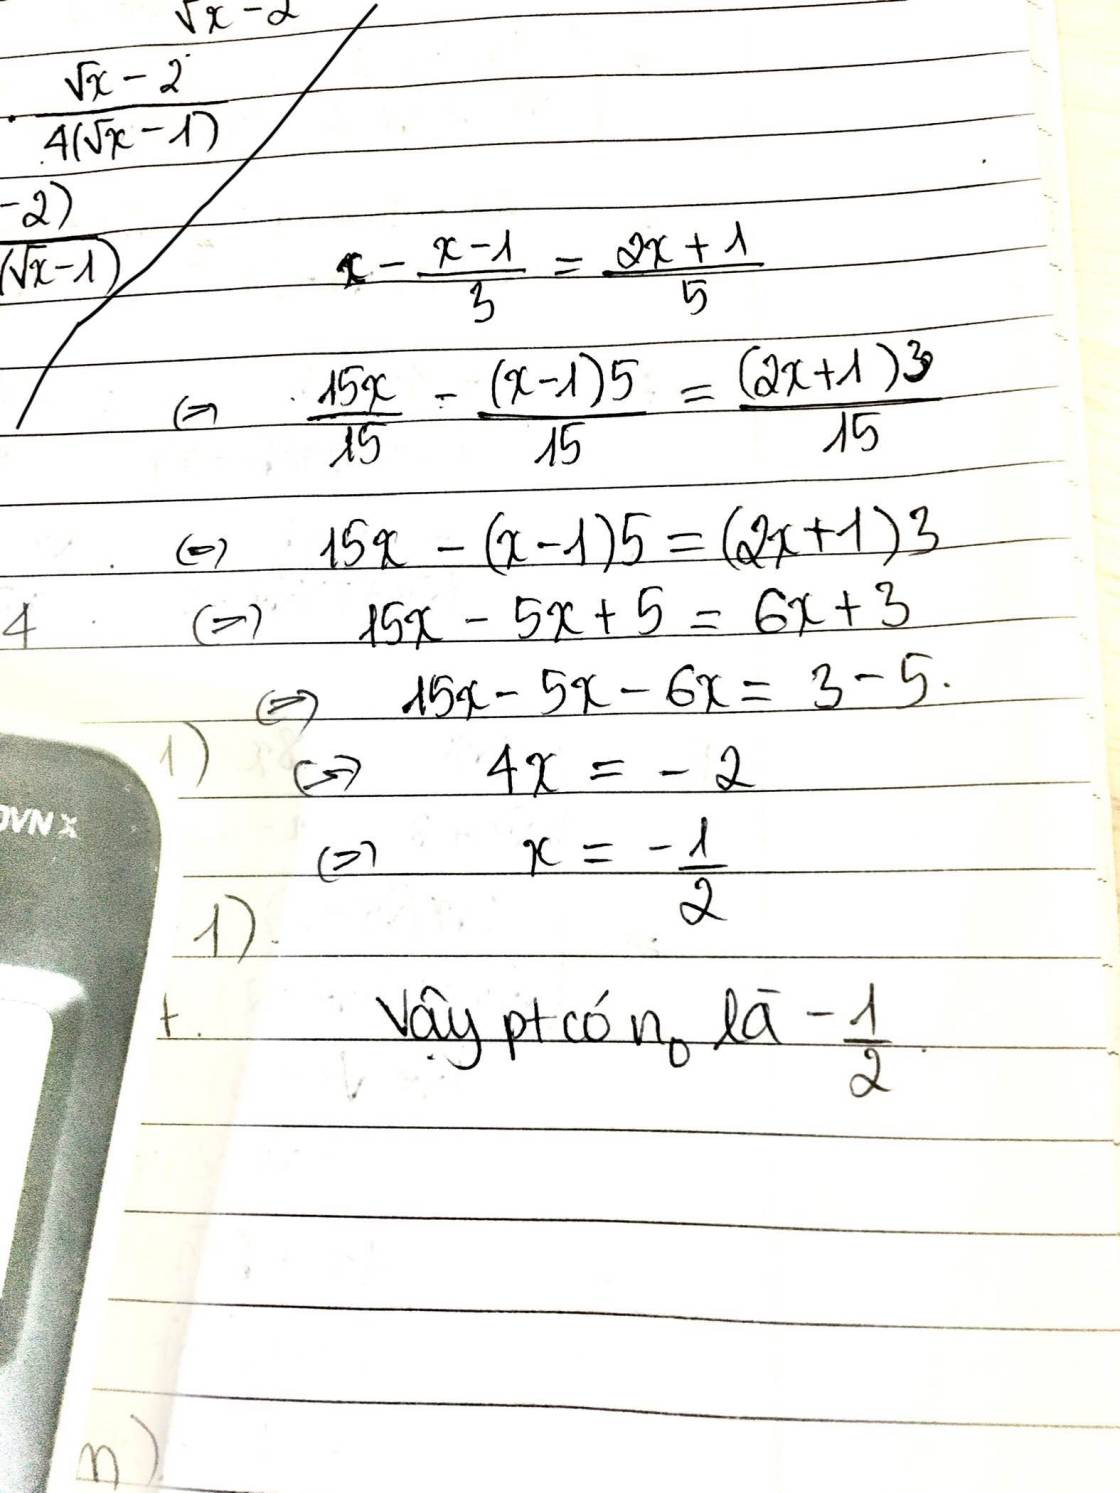 √x - 2
√x - 2
4(√x - 1)
-2)
(√x - 1)
x - (x-1)/3 = (2x+1)/5
⇔ 15x/15 - (x-1)5/15 = (2x+1)3/15
⇔ 15x - (x-1)5 = (2x+1)3
4
⇔ 15x - 5x + 5 = 6x + 3
⇔ 15x - 5x - 6x = 3 - 5.
1)
⇔ 4x = -2
VN X
⇔ x = -1/2
1).
Vây pt có n₀ là -1/2.
n)